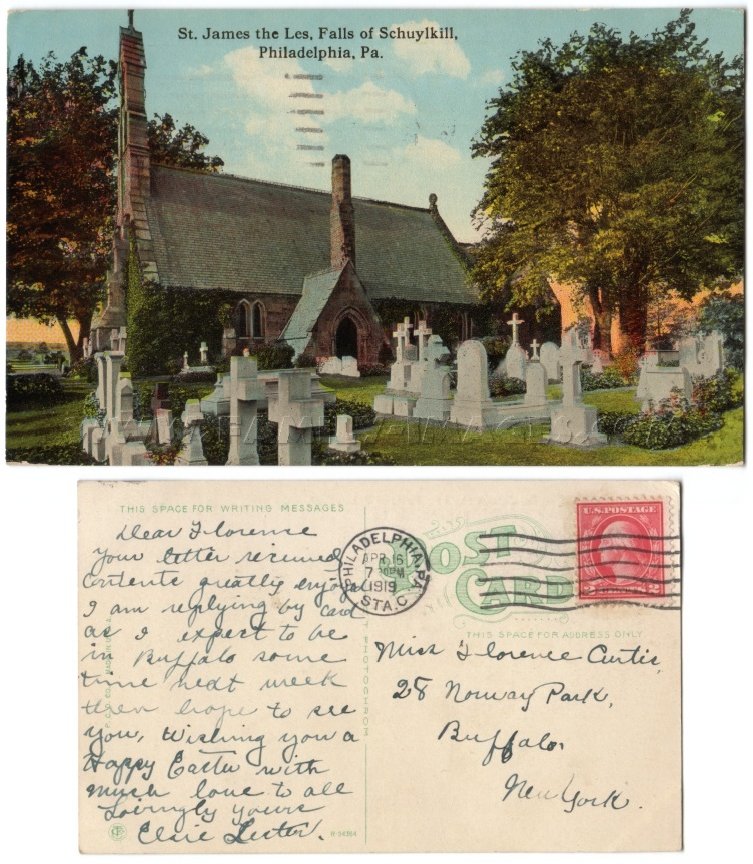 St. James the Les, Falls of Schuylkill,
Philadelphia, Pa.
FAMILY-IMAGES.COM
THIS SPACE FOR WRITING MESSAGES
Dear Florence
Your letter received
Contents greatly enjoyed
I am replying by card
as I expect to be
in Buffalo some
time next week
then hope to see
you, Wishing you a
Happy Easter with
much love to all
Lovingly yours
Elsie Lester.
PHILADELPHIA, PA.
APR 16
7 PM
1919
STA. C
POST
CARD
U.S. POSTAGE
2 CENTS 2
THIS SPACE FOR ADDRESS ONLY
Miss Florence Curtis,
28 Norway Park,
Buffalo,
New York.
PHOTOCHROM
R-54364